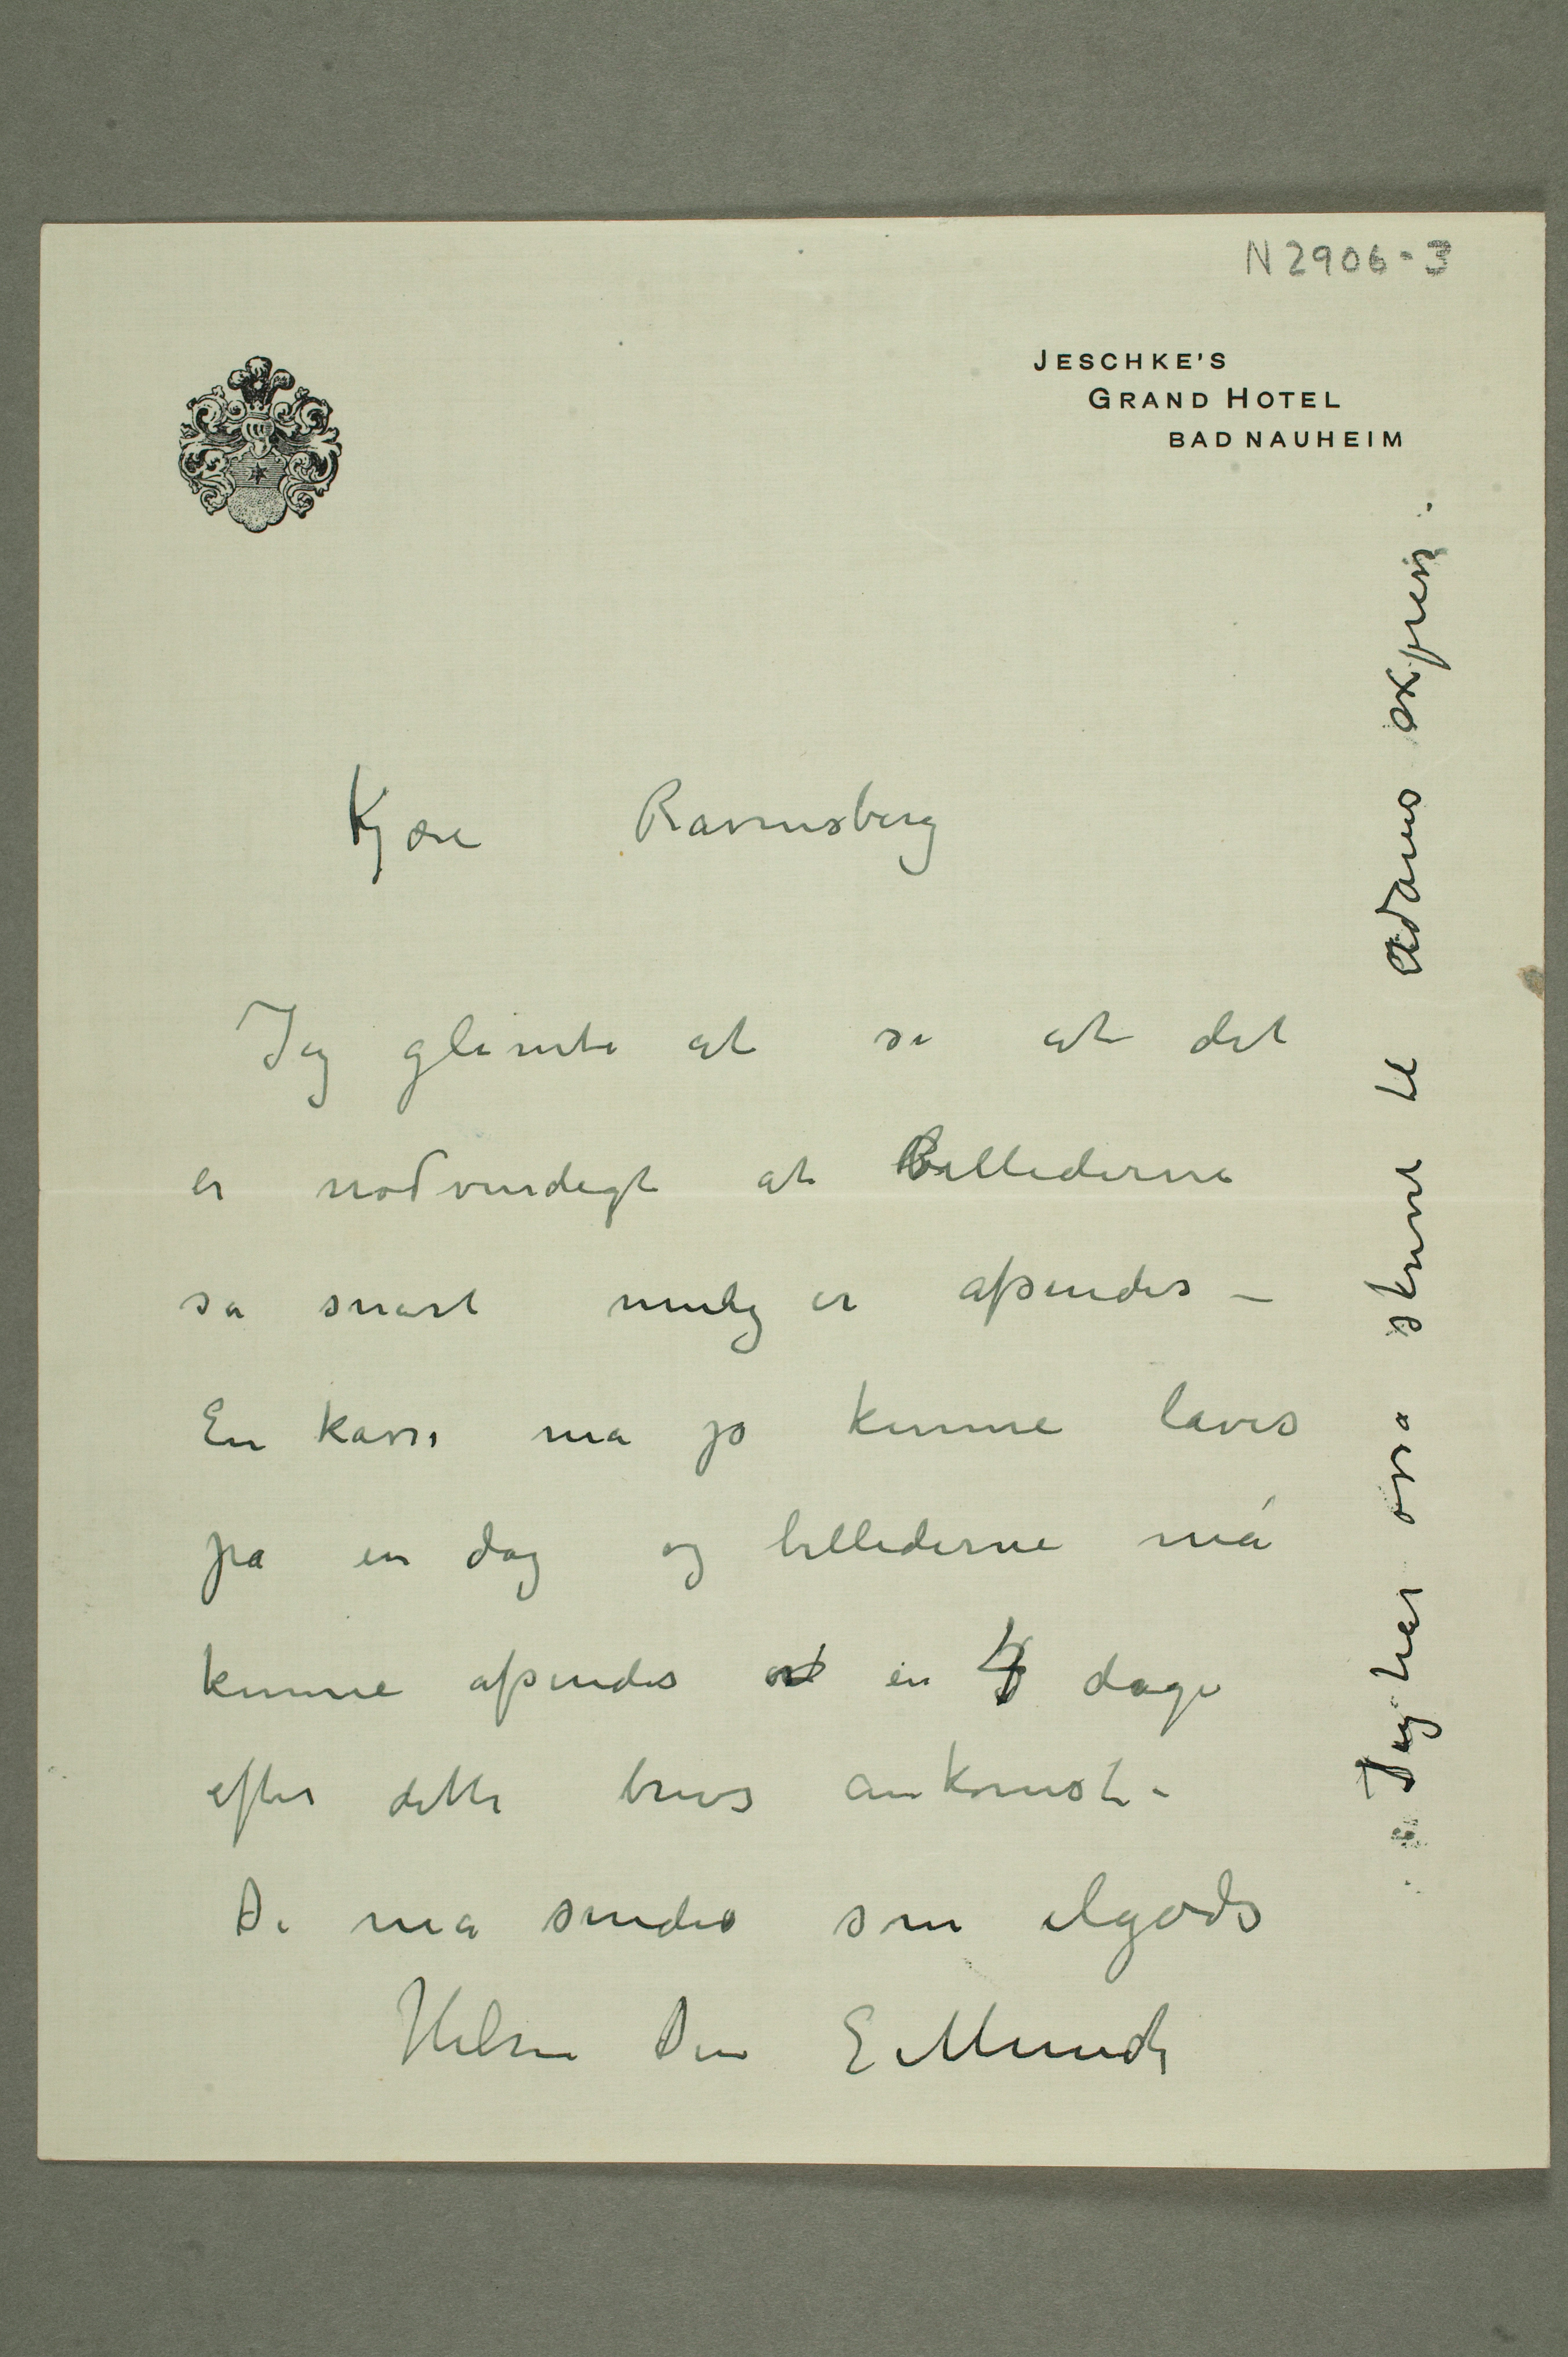 N 2906-3
JESCHKE'S
GRAND HOTEL
BAD NAUHEIM
Kjære Ravensberg
Jeg glemte at se at det
er nødvendigt at Billederne
så snart mulig er afsendes –
En kasse må jo kunne laves
på en dag og billederne må
kunne afsendes en dage
efter dette brevs ankomst –
De må sendes som ilgods
Hilsen Din E Munch
Jeg har osså skrevet til Adams express.